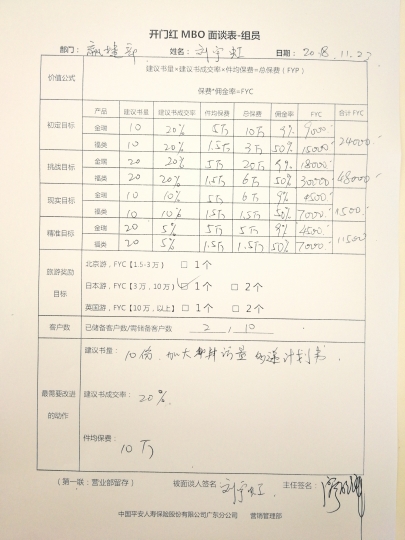 开门红 MBO 面谈表-组员
部门： 姓名：刘宇虹 日期：2018.11.27
价值公式
建议书量×建议书成交率×件均保费=总保费（FYP）
保费*佣金率=FYC
产品 建议书量 建议书成交率 件均保费 总保费 佣金率 FYC 合计 FYC
初定目标
金瑞 10 20% 5万 10万 9% 9000
福类 10 20% 1.5万 3万 50% 15000
24000
挑战目标
金瑞 20 20% 5万 20万 9% 18000
福类 20 20% 1.5万 6万 50% 30000
48000
现实目标
金瑞 10 10% 5万 9% 4500
福类 10 10% 1.5万 1.5万 50% 7000
精准目标
金瑞 20 5% 5万 5万 9% 4500
福类 20 5% 1.5万 1.5万 50% 7000
11500
旅游奖励
目标
北京游，FYC【1.5-3万】 □ 1个
日本游，FYC【3万，10万】 □ 1个 □ 2个
英国游，FYC【10万，以上】 □ 1个 □ 2个
客户数 已储备客户数/需储备客户数 2 / 10
最需要改进
的动作
建议书量：10份，加大 访量 计划书.
建议书成交率：20%.
件均保费：
10万
（第一联：营业部留存） 被面谈人签名 刘宇虹 主任签名：
中国平安人寿保险股份有限公司广东分公司 营销管理部